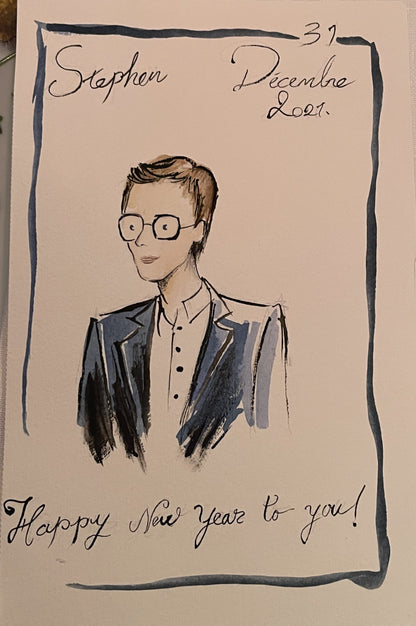 Stephen
31
Décembre
2021.
Happy New Year to you!